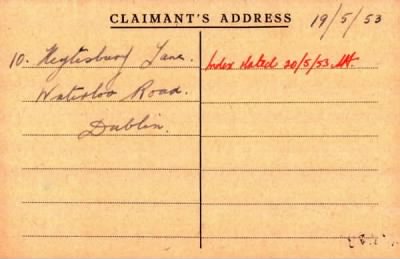 CLAIMANT'S ADDRESS
19/5/53
10. Heytesbury Lane.
Waterloo Road.
Dublin.
Index dated 20/5/53